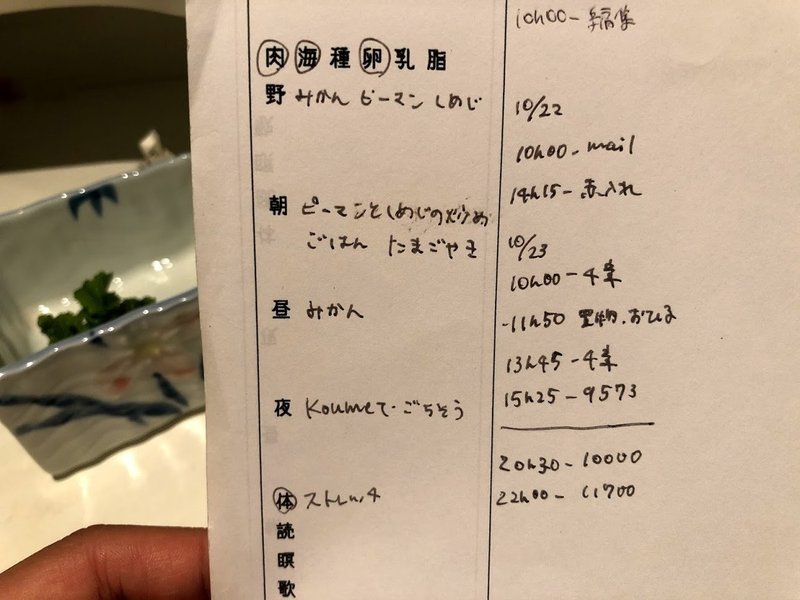 肉 海 種 卵 乳 脂
野 みかん ピーマン しめじ
朝 ピーマンとしめじの炒め
ごはん たまごやき
昼 みかん
夜 Koumeで ごちそう
体 ストレッチ
読
瞑
歌
10h00-編集
10/22
10h00-mail
14h15-赤入れ
10/23
10h00-4章
-11h50 買物、おひる
13h45-4章
15h25-9573
20h30-10000
22h00-11700